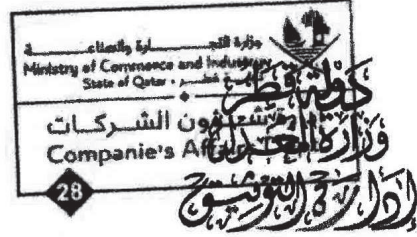 وزارة التجـــارة والصناعة
Ministry of Commerce and Industry
State of Qatar • دولة قطــر
شـــؤون الشــركــات
Companie's Affairs
28
دولة قطر
وزارة العدل
إدارة التوثيق